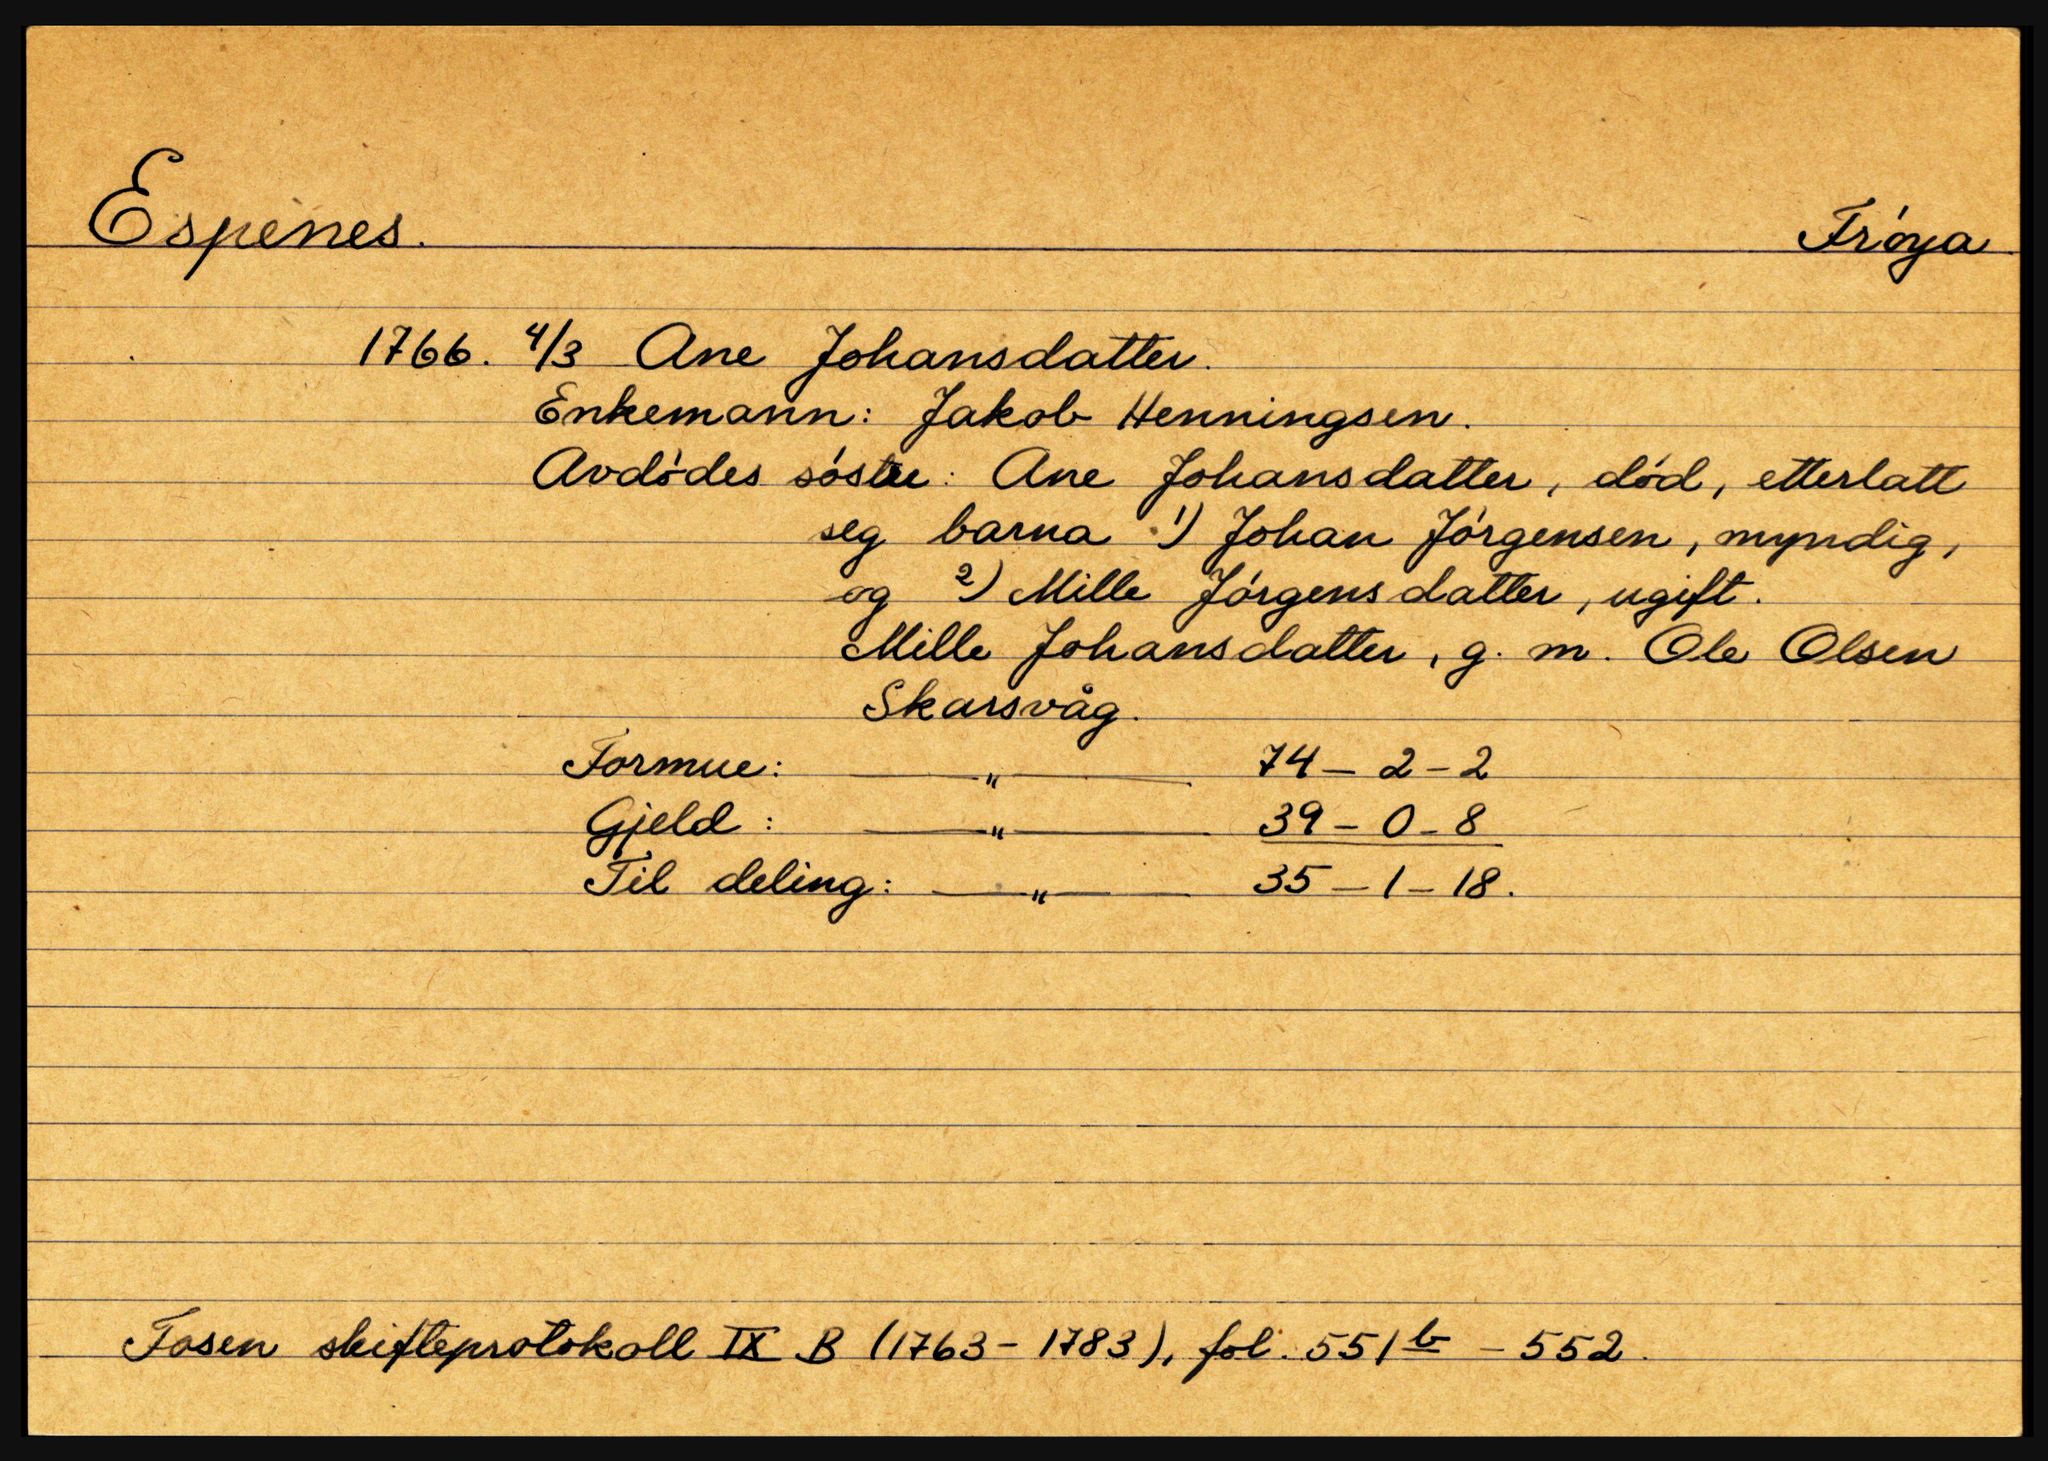 Espenes. Frøya
1766. 4/3 Ane Johansdatter.
Enkemann: Jakob Henningsen.
Avdødes søster: Ane Johansdatter, død, etterlatt
seg barna 1) Johan Jørgensen, myndig,
og 2) Mille Jørgensdatter, ugift.
Mille Johansdatter, g. m. Ole Olsen
Skarsvåg.
Formue: — " — 74 – 2 – 2
Gjeld: — " — 39 – 0 – 8
Til deling: — " — 35 – 1 – 18.
Fosen skifteprotokoll IX B (1763 – 1783), fol. 551b – 552.